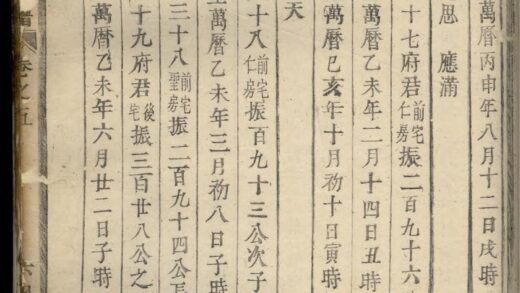 萬曆丙申年八月十二日戌時
思 應滿
十七府君前宅仁房振二百九十六
萬曆乙未年二月十四日丑時
萬曆己亥年十月初十日寅時
天
十八前宅仁房振百九十三公次子
萬曆乙未年三月初八日子時
三十八前宅聖房振二百九十四公長
十九府君後宅振三百廿八公之
萬曆乙未年六月廿二日子時
卷之五